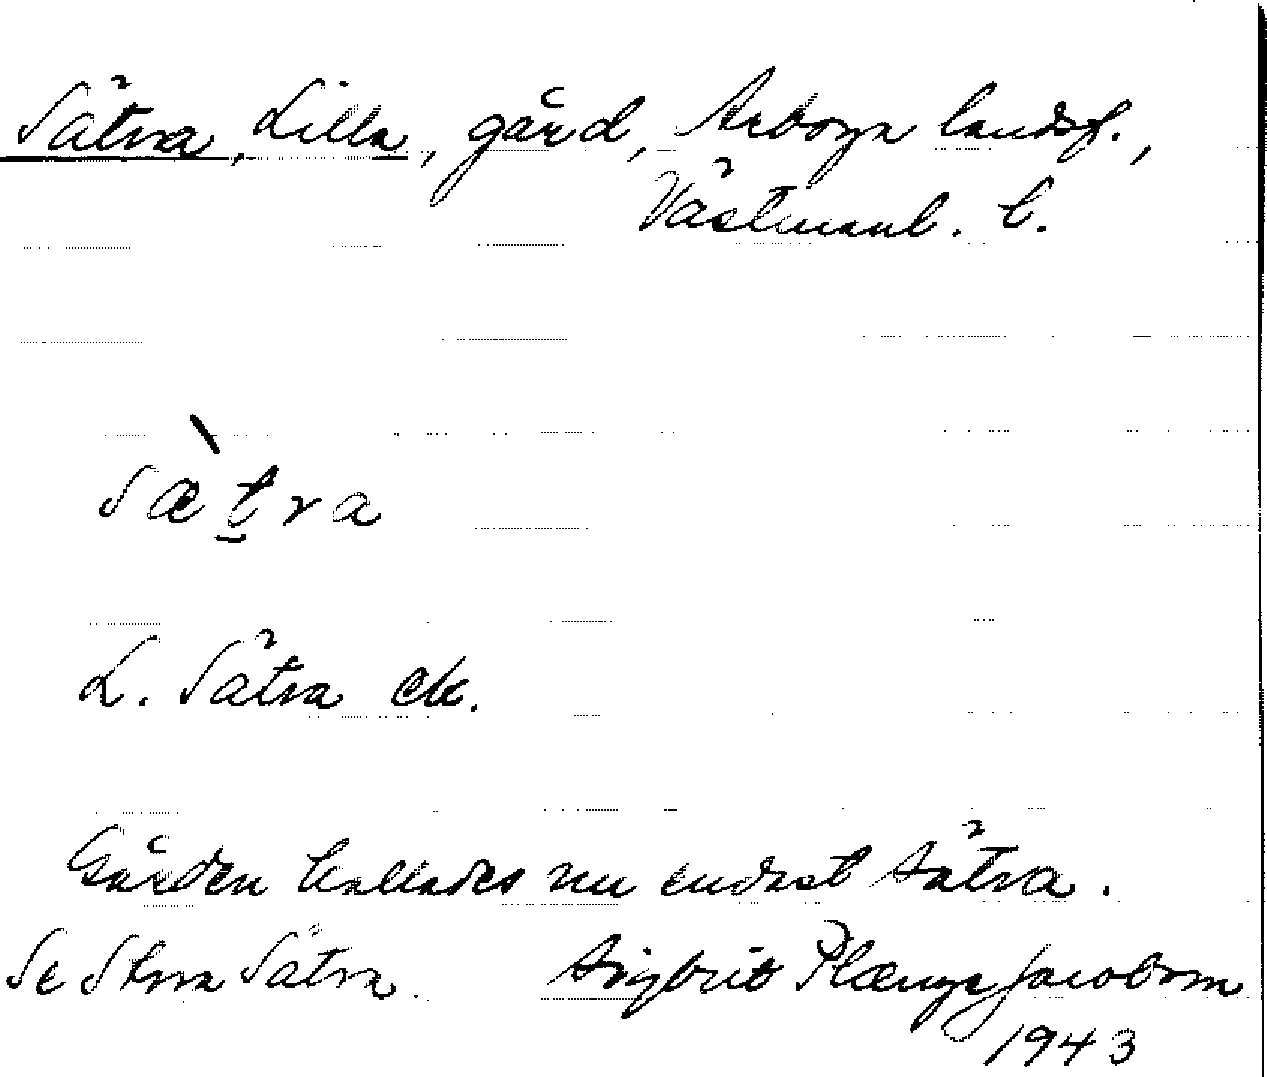 Sätra, Lilla, gård, Arboga landsf.,
Västmanl. l.
sæ̀t̯ra
L. Sätra ek.
Gården kallades nu endast Sätra.
Se Stora Sätra. Sigbrit Plænge Jacobson
1943